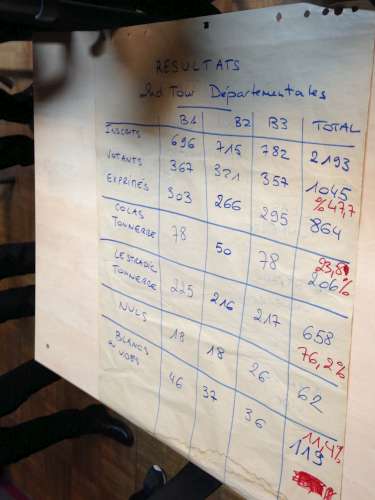 RESULTATS
2nd Tour Départementales
B1 B2 B3 TOTAL
INSCRITS 696 715 782 2193
VOTANTS 367 321 357 1045
%47,7
EXPRIMÉS 303 266 295 864
COLAS TONNERRE 78 50 78 206
23,8%
LESTRADIC TONNERRE 225 216 217 658
76,2%
NULS 18 18 26 62
BLANCS OU VIDES 46 37 36 119
11,4%